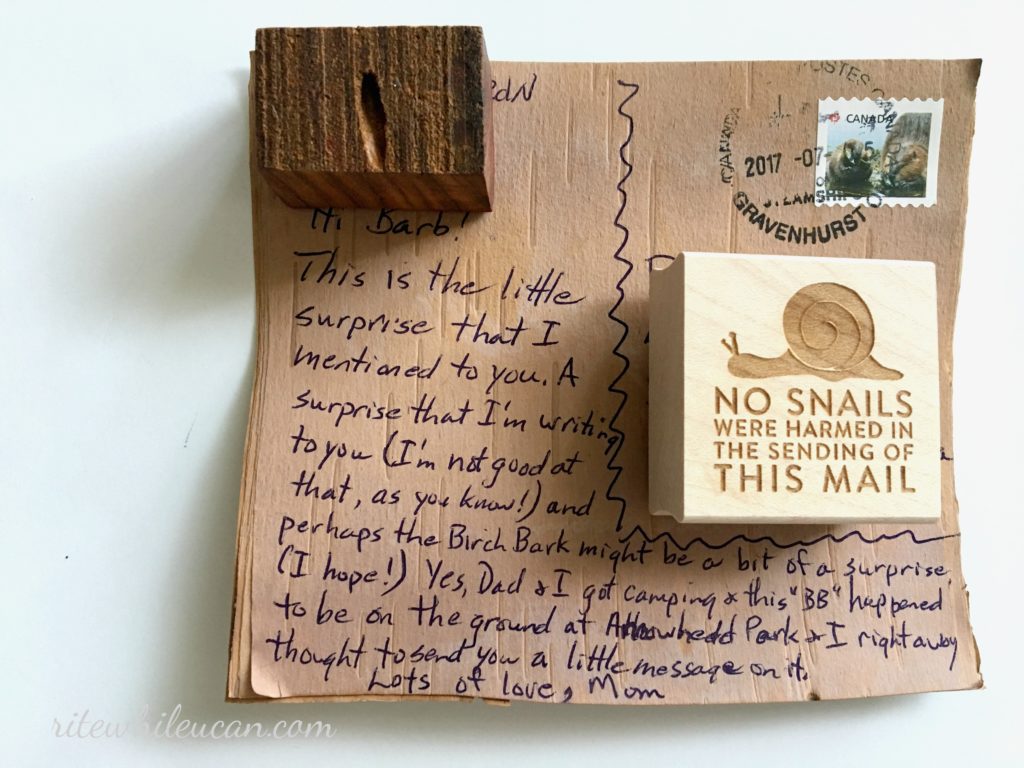 Hi Barb!
This is the little
surprise that I
mentioned to you. A
surprise that I'm writing
to you (I'm not good at
that, as you know!) and
perhaps the Birch Bark might be a bit of a surprise
(I hope!) Yes, Dad & I got camping & this "BB" happened
to be on the ground at Arrowhead Park & I right away
thought to send you a little message on it.
Lots of love, Mom
POSTES
CANADA
2017 -07-
GRAVENHURST
CANADA
NO SNAILS
WERE HARMED IN
THE SENDING OF
THIS MAIL
ritewhileucan.com